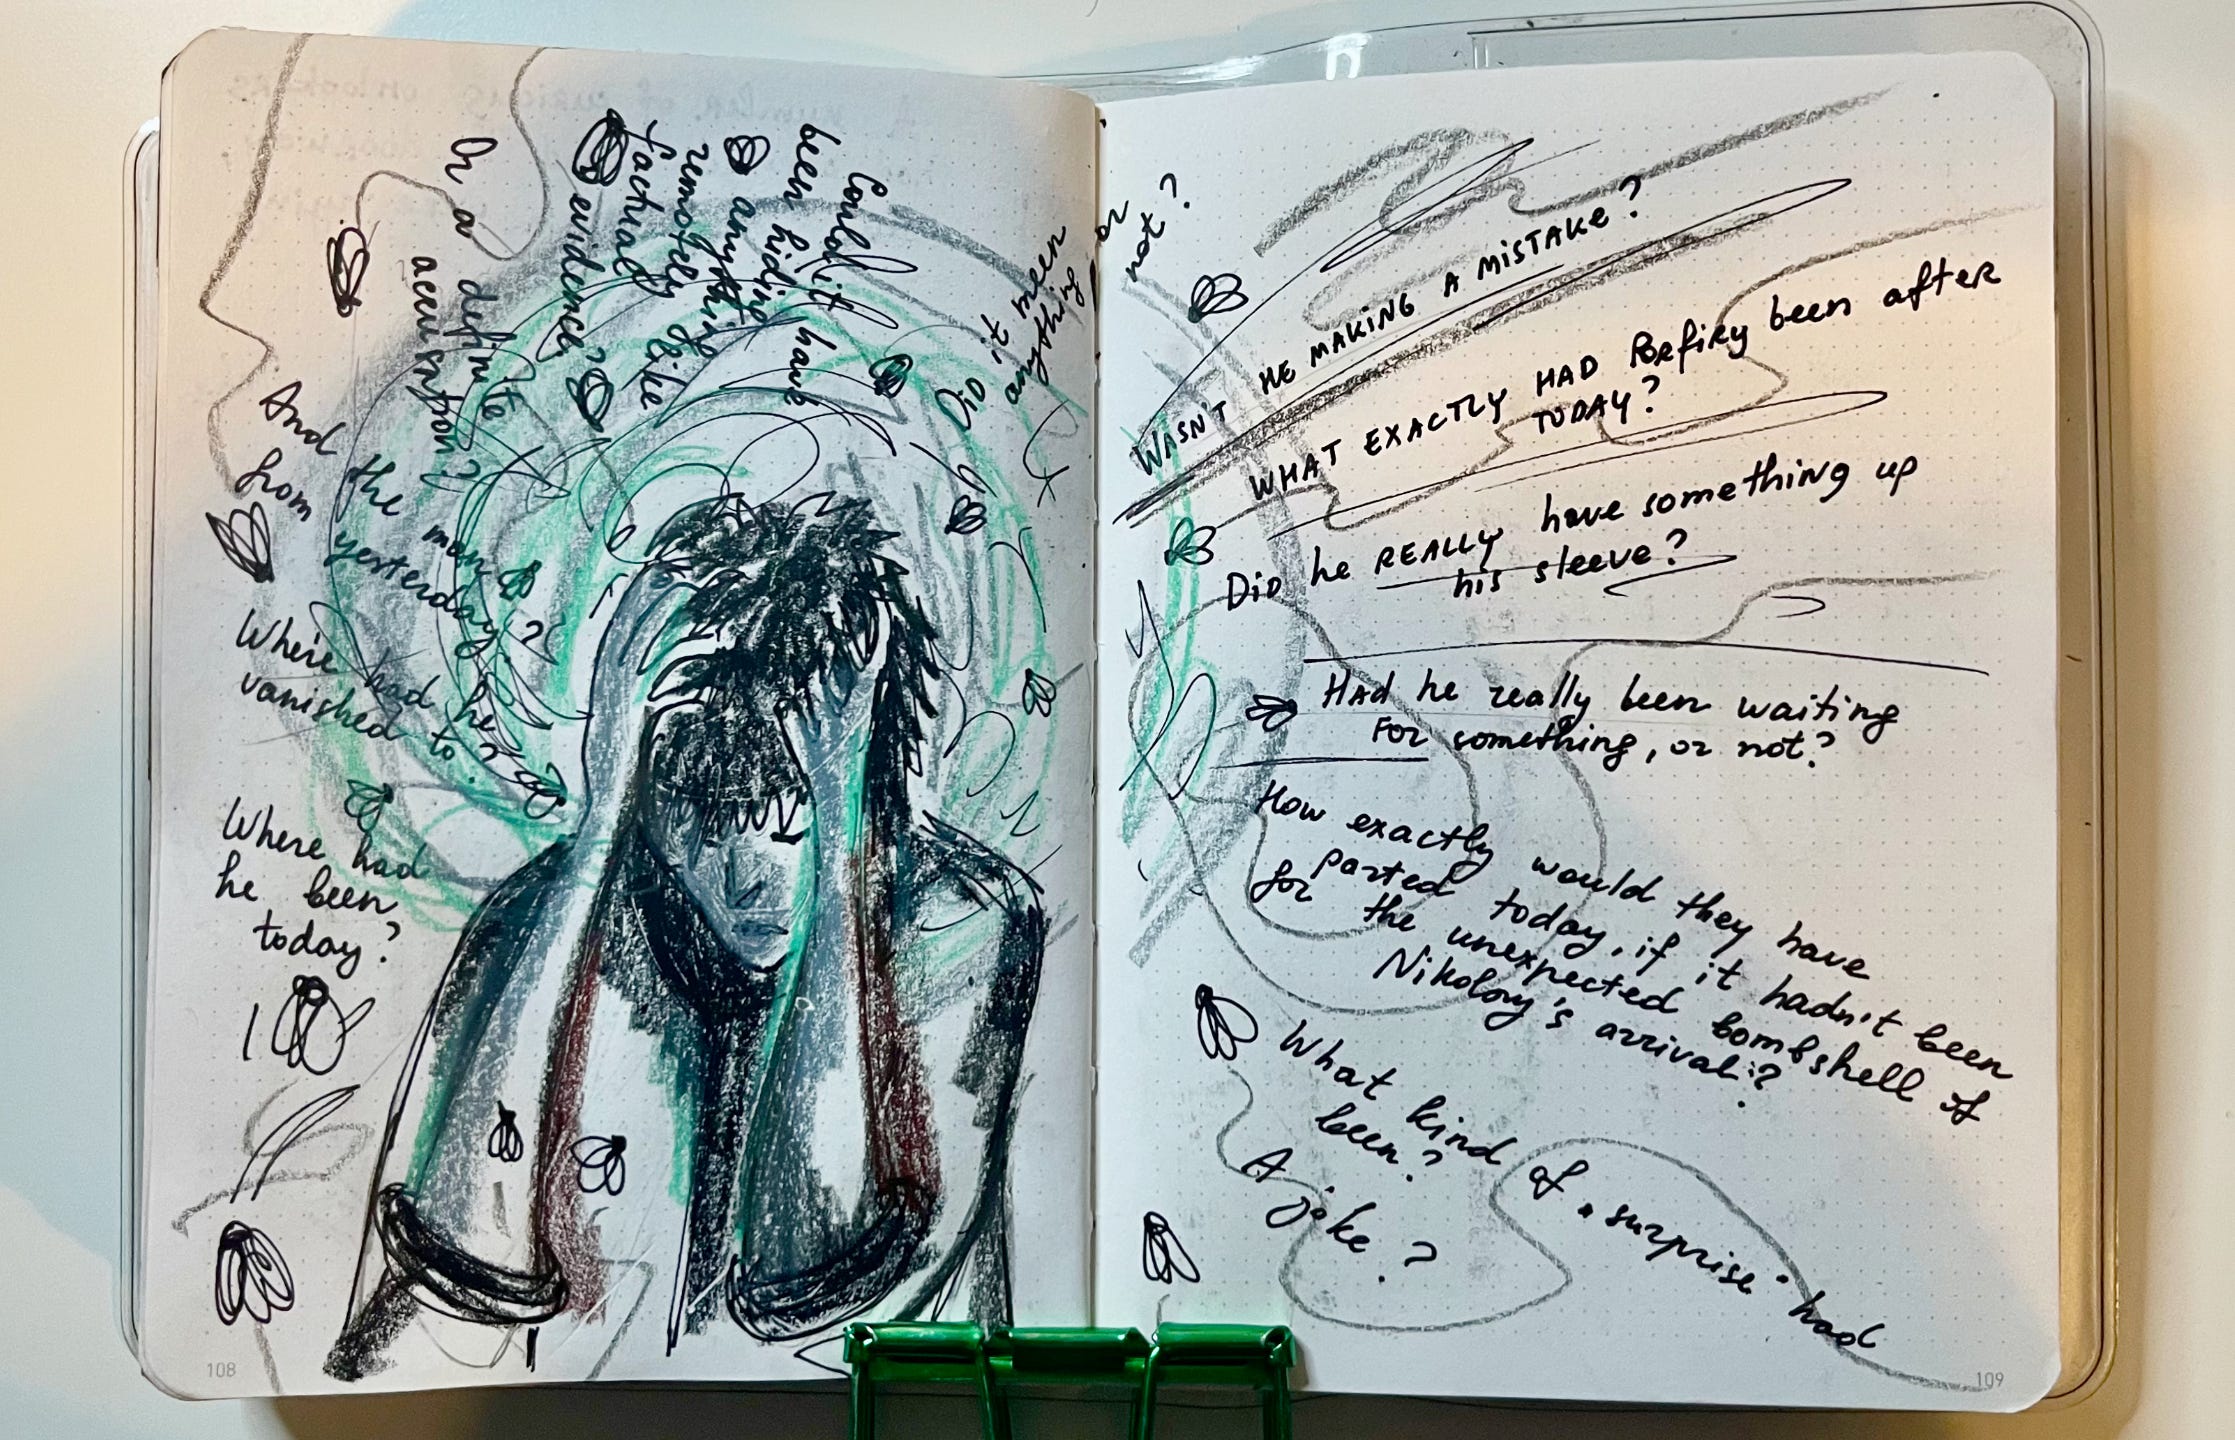 Or a definite
accusation?
Could it have
been hiding
anything
remotely like
factual
evidence?
Did
it mean
anything
or
not?
And the man
from yesterday?
Where had he
vanished to.
Where had
he been
today?
108
WASN'T HE MAKING A MISTAKE?
WHAT EXACTLY HAD PORFIRY been after
TODAY?
DiD he REALLY have something up
his sleeve?
HAd he really been waiting
FOR something, or not?
How exactly would they have
parted today, if it hadn't been
for the unexpected bombshell of
Nikolay's arrival?
What kind of surprise had
been?
A joke?
109